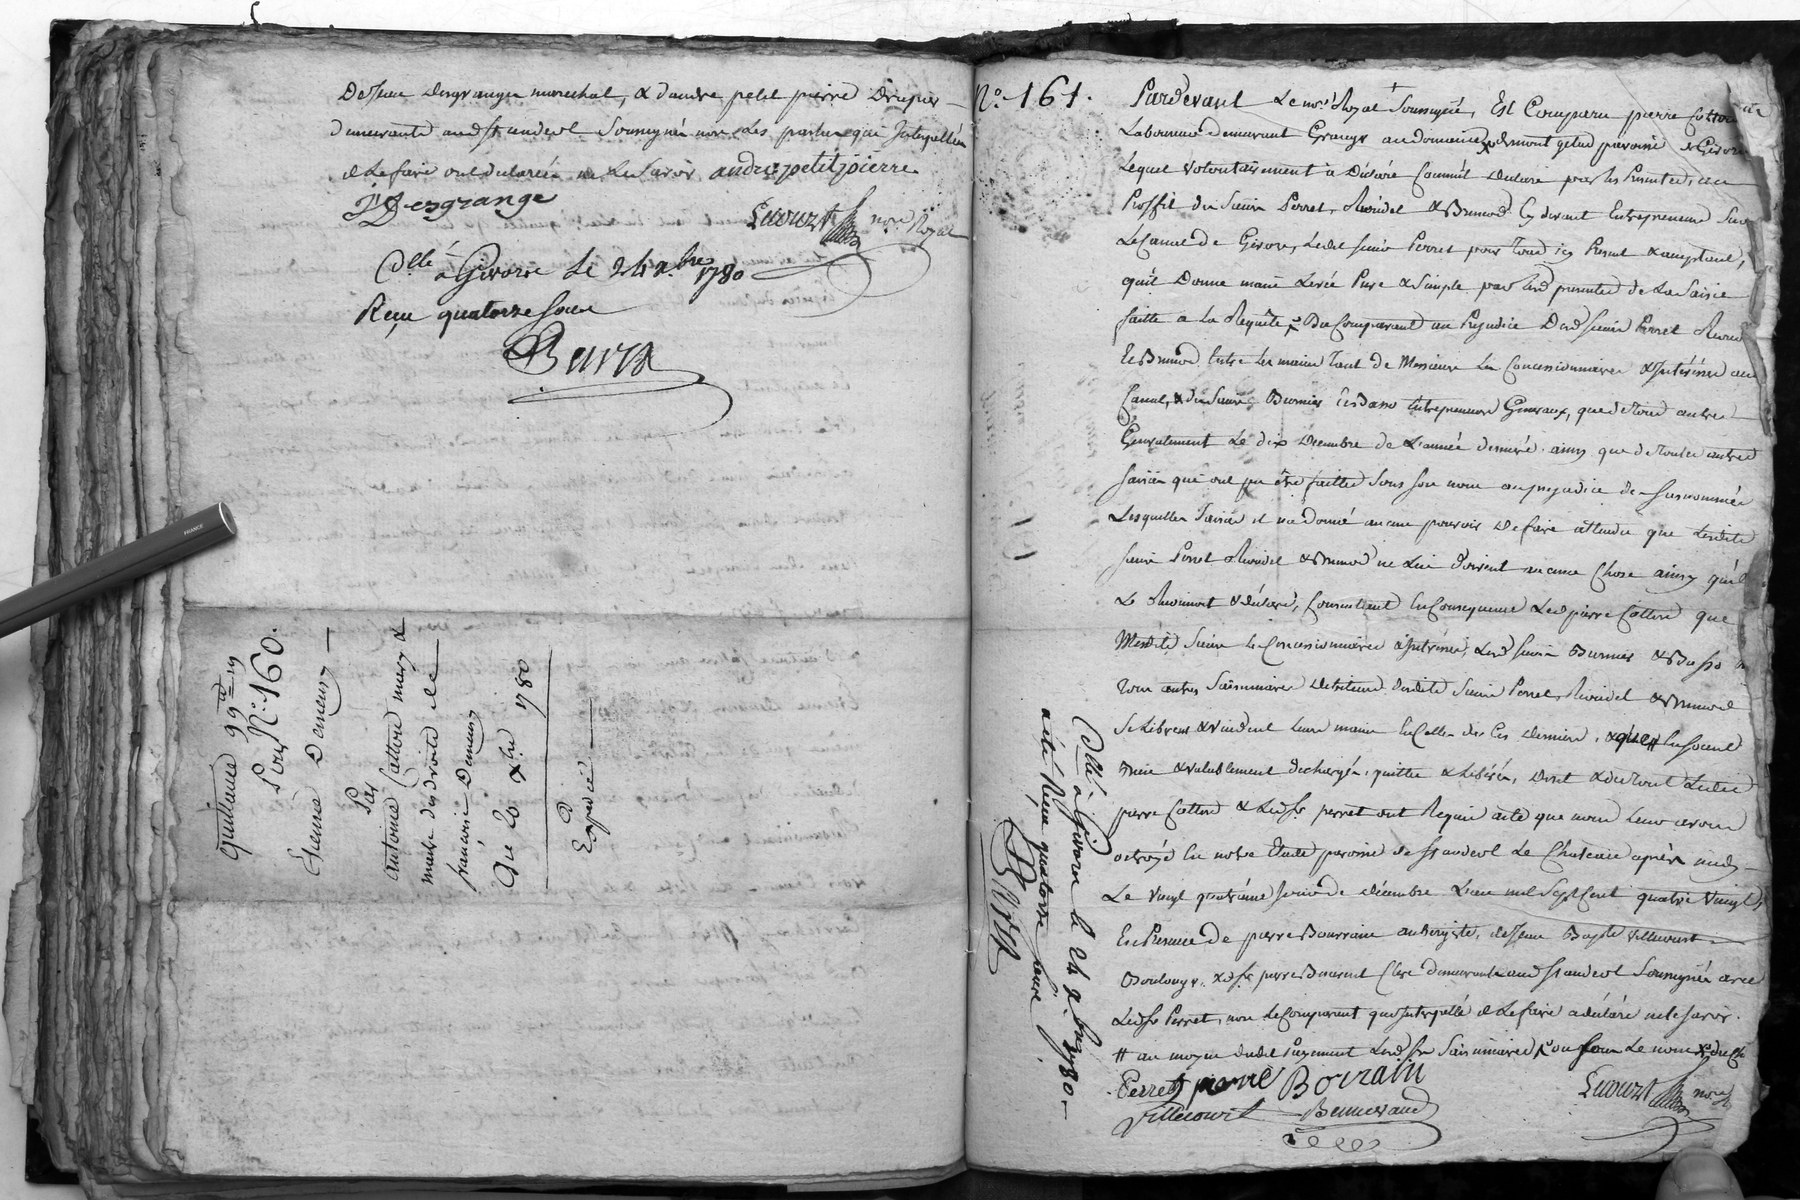 De Jean desgranges marechal, & d'andre petit pierre Drapier
demeurants aud. st andeol Soussignés non les parties qui Interpellées
de le faire ont déclarées ne le savoir andre petitpierre
J Desgrange
Lievozt nore. Royal
Cllé à Givors le 24 Xbre 1780
Reçu quatorze sous
Barra
FRANCE
Quittance 99# 19s
Pour N°. 160.
Etienne Demeurs
Par
antoine Cattон mary &
maitre des droits de
françoise Demeurs
Du 20 Xbre 1780
Expédié
N°. 161.
Pardevant Le nore. Royal Soussigné, Est Comparu pierre Cotton
Laboureur demeurant Granger au domaine de mont gelas paroisse de Givors
Lequel volontairement à Déclaré Comme il declare par les Presentes, au
Proffit des Sieurs Perret, Rivoidet & Brunod Cy devant Entrepreneurs sur
Le Canal de Givors, Ledit sieur Perret pour Tous icy Present & acceptant,
qu'il Donne main Levée Pure & Simple par les presentes de La Saisie
faitte a La Requête Du Comparant au Prejudice Desd. sieurs Perret
Et Brunod Entre les mains Tant de Messieurs Les Concessionnaires & Intéréssés au
Canal, & des Sieurs Burnier & Basso Entrepreneurs Generaux, que de Tous autres
Generalement Le dix Decembre de L'année derniére. ainsy que de Toutes autres
saisies qui ont pu être faittes sous son nom au prejudice des susnommés
Lesquelles Saisies il n'a donné aucun pouvoir de faire attendu que Lesdits
sieurs Perret Rivoidet & Brunod ne Lui doivent aucune Chose ainsy qu'il
Le Reconnoit & declare, Consentant En Consequence Led. pierre Cotton que
Mesdits Sieurs les Concessionnaires & Intéréssés, Lesd. sieurs Burnier & Basso &
tous autres Saisissnaires Débiteurs desdits Sieurs Perret, Rivoidet & Brunod
Se Libèrent & vuident Leurs mains En Celles de Ces derniers, & que # En soient
bien & valablement dechargés, quittes & Libérés, Dont & du Tout Lesdits
pierre Cotton & Led. sr. perret ont Requis acte que nous Leur avons
octroyé En notre Etude paroisse de st andeol Le Chateau après midy
Le vingt quatrième jour de décembre L'an mil Sept Cent quatre Vingt,
En Presence de pierre Bourrain aubergiste, de Jean Bapte. villecourt
Boulanger & de sr. pierre Benevent Clerc demeurants aud. st andeol Soussignés avec
Led. sr. Perret, non Le Comparant qui Interpellé de Le faire a déclaré ne Le Savoir.
# au moyen dudit Payement Lesd. srs. Saisissnaires
Perret pierre Borrain
Villecourt Benevand
Lievozt nore.
Cllé à Givors le 24 Xbre 1780
a été Reçu quatorze sous
Barra